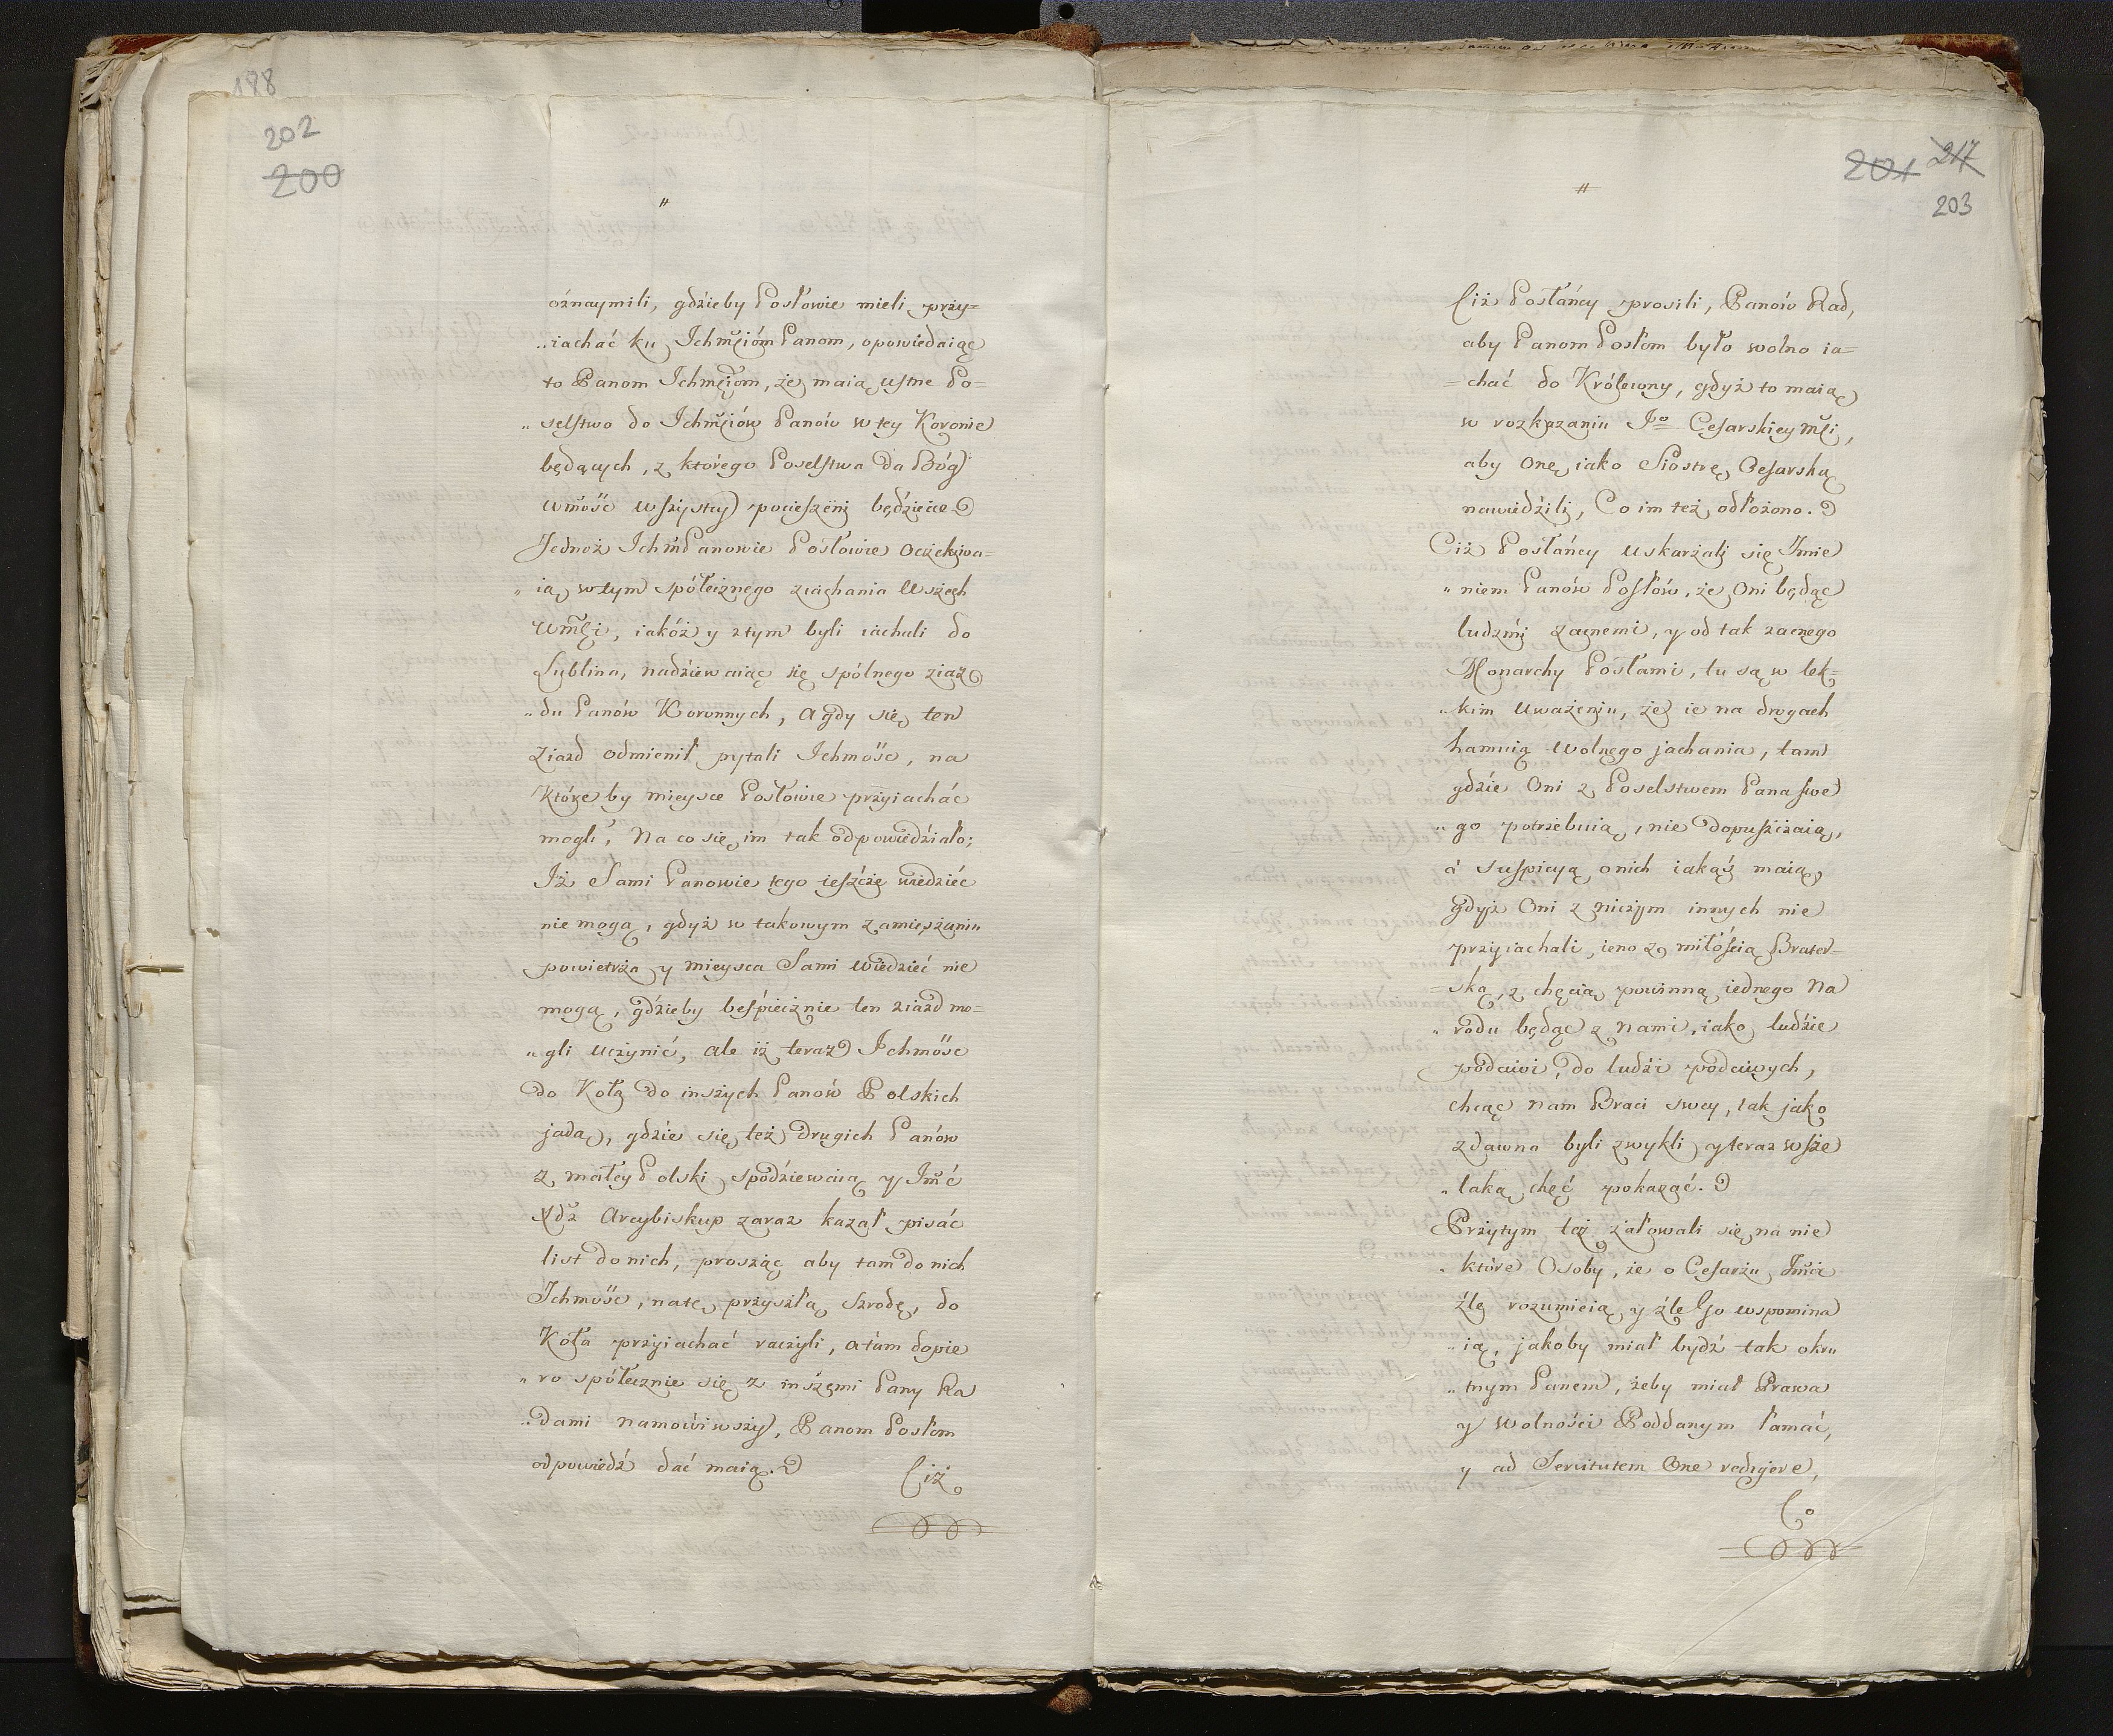 188
202
200
"
oźnaymili, gdźieby Posłowie mieli przy=
„iachać ku Ichmciom Panom, opowiedaiąc
to Panom Ichmciom, że maią ustne Po=
„selstwo do Ichmciów Panów w tey Koronie
będących, z którego Poselstwa da Bóg
wmość wszyscy pocieszeni będziecie
Jednoż Ichm Panowie Posłowie oczekiwa=
„ią w tym spółecznego ziachania wszech
wmci, iakóż y z tym byli iachali do
Lublina, nadziewaiąc się spólnego ziaz
„du Panów Koronnych, a gdy się ten
Ziazd odmienił pytali Ichmość, na
które by mieysce Posłowie przyiachać
mogli, Na co się im tak odpowiedziało;
Iż Sami Panowie tego ieszcze wiedzieć
nie mogą, gdyż w takowym zamieszaniu
powietrza y mieysca Sami wiedzieć nie
mogą, gdzieby beśpiecznie ten ziazd mo=
„gli uczynić, ale iż teraz Ichmość
do Koła do inszych Panów Polskich
jadą, gdzie się też drugich Panów
z małey Polski spodziewaią y Imć
Xdz Arcybiskup zaraz kazał pisać
list do nich, prosząc aby tam do nich
Ichmość, na tę przyszłą Szrodę, do
Koła przyiachać raczyli, a tam dopie
„ro spółecznie się z inszemi Pany Ra
„dami namówiwszy, Panom Posłom
odpowiedź dać maią.
Ciż
201 217
203
"
Ciż Posłańcy prosili, Panów Rad,
aby Panom Posłom było wolno ia=
=chać do Królewny, gdyż to maią
w rozkazaniu Jo Cesarskiey Mci,
aby onę iako Siostrę Cesarską
nawiedźili, Co im też odłożono.
Ciż Posłańcy uskarżali się Imie
„niem Panów Posłów, że Oni będąc
ludzmi zacnemi, y od tak zacnego
Monarchy Posłami, tu są w lek=
„kim uważeniu, że ie na drogach
hamuią wolnego jachania, tam
gdzie Oni z Poselstwem Pana swe
„go potrzebuią, nie dopuszczaią,
a suspicyą o nich iakąś maią,
gdyż Oni z niczym innych nie
przyiachali, ieno z miłością Brater=
=ską, z chęcią powinną iednego Na
„rodu będąc z nami, iako ludzie
podciwi, do ludźi podciwych,
chcąc nam Braci swey, tak jako
zdawna byli zwykli y teraz wsze
„laką chęć pokazać.
Przytym też żałowali się na nie
„które Osoby, że o Cesarzu Jmci
źle rozumieią y źle Go wspomina
„ią, jakoby miał bydź tak okru
„tnym Panem, żeby miał Prawa
y wolności Poddanym łamać,
y ad Servitutem One redigere,
Co